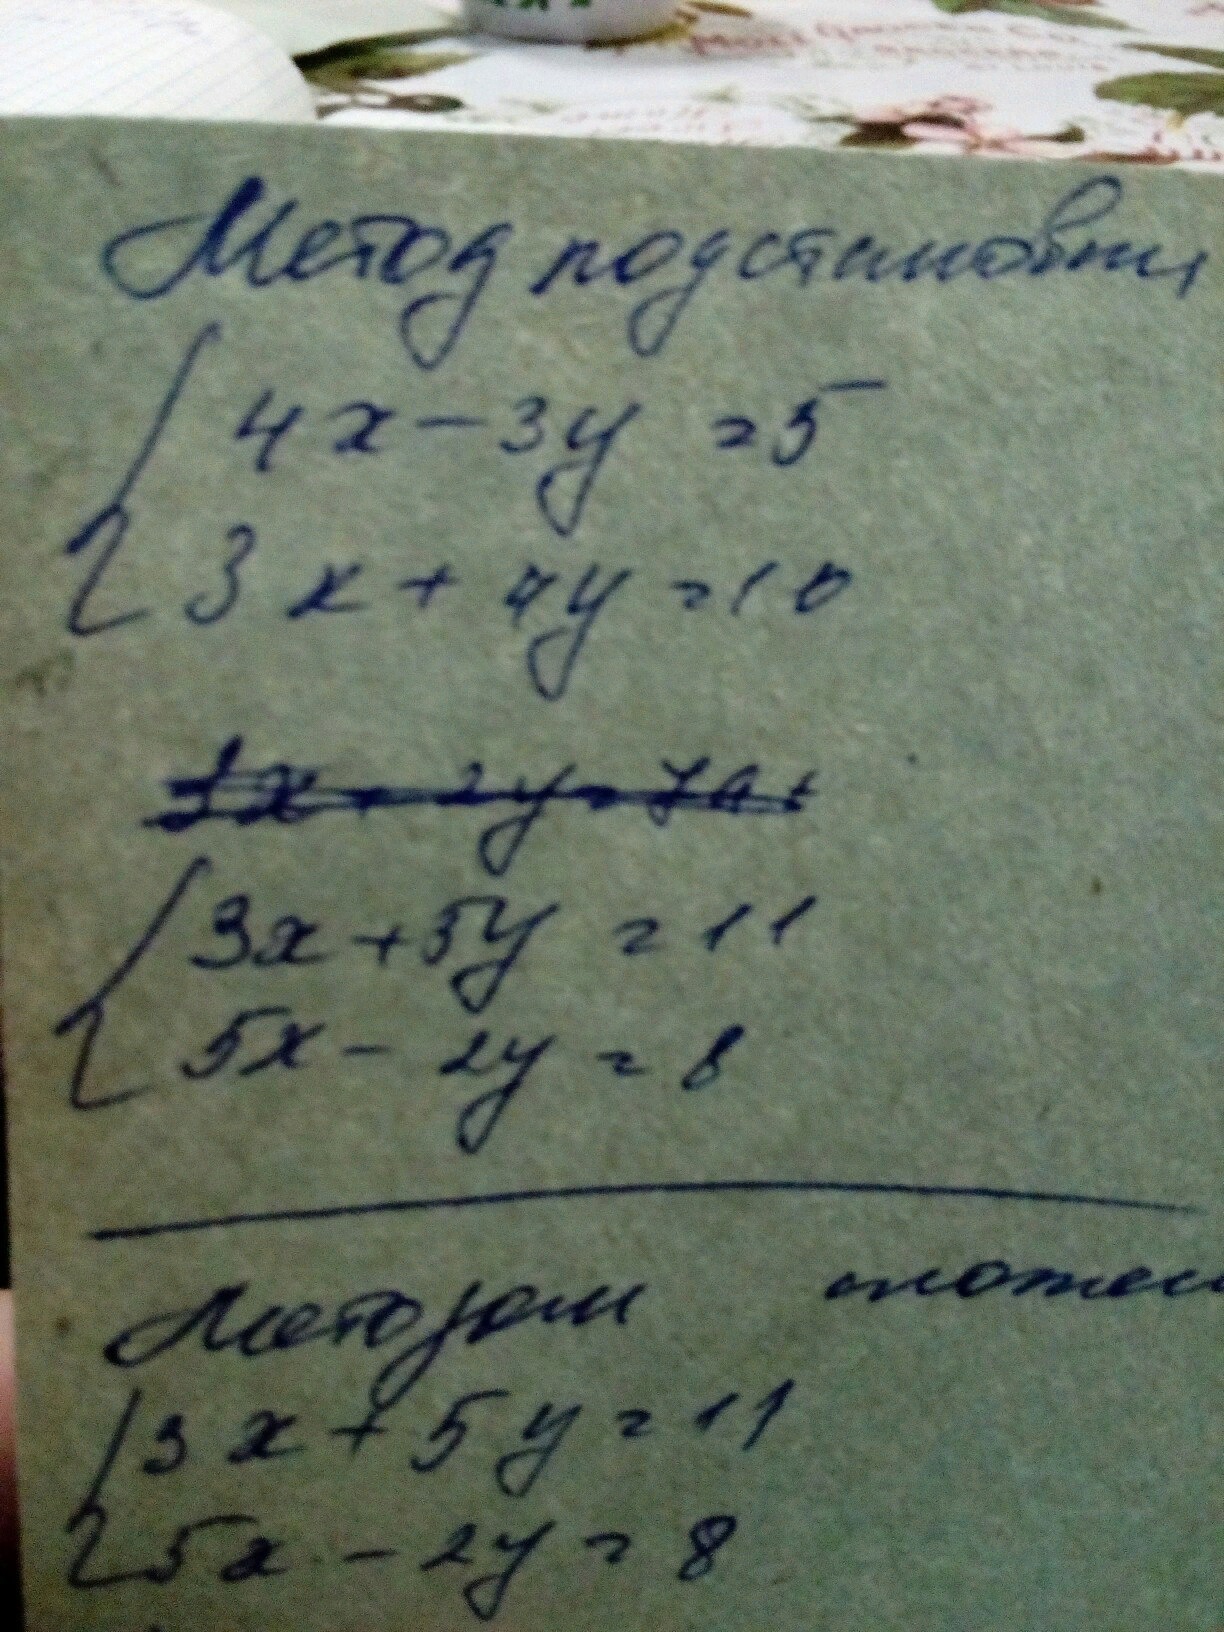 Метод подстановки
4x - 3y = 5
3x + 4y = 10
3x + 5y = 11
5x - 2y = 8
Методом
3x + 5y = 11
5x - 2y = 8